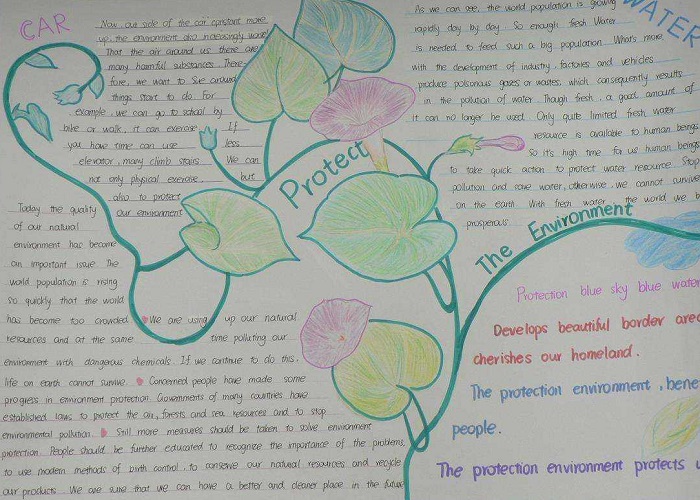 CAR
Now our side of the car constant more
up, the environment also increasingly worse
That the air around us there are
many harmful substances. There-
fore, we want to Sue around
things start to do. For
example, we can go to school by
bike or walk, it can exercise. If
you have time can use less
elevator, many climb stairs. We can
not only physical exercise, but
also to protect
our environment
Today the quality
of our natural
environment has become
an important issue. The
world population is rising
so quickly that the world
has become too crowded. We are using up our natural
resources and at the same time polluting our
environment with dangerous chemicals. If we continue to do this,
life on earth cannot survive. Concerned people have made some
progress in environment protection. Governments of many countries have
established laws to protect the air, forests and sea resources and to stop
environmental pollution. Still more measures should be taken to solve environment
protection. People should be further educated to recognize the importance of the problems,
to use modern methods of birth control, to conserve our natural resources and recycle
our products. We are sure that we can have a better and cleaner place in the future
Protect
The Environment
WATER
As we can see, the world population is growing
rapidly day by day. So enough fresh Water
is needed to feed such a big population. What's more,
with the development of industry, factories and vehicles
produce poisonous gases or wastes, which consequently results
in the pollution of water. Though fresh, a good amount of
it can no longer be used. Only quite limited fresh water
resource is available to human beings
So it's high time for us human beings
to take quick action to protect water resource. Stop
pollution and save water, otherwise, we cannot survive
on the earth. With fresh water, the world we b
prosperous
Protection blue sky blue water
Develops beautiful border area
cherishes our homeland.
The protection environment, bene
people.
The protection environment protects u